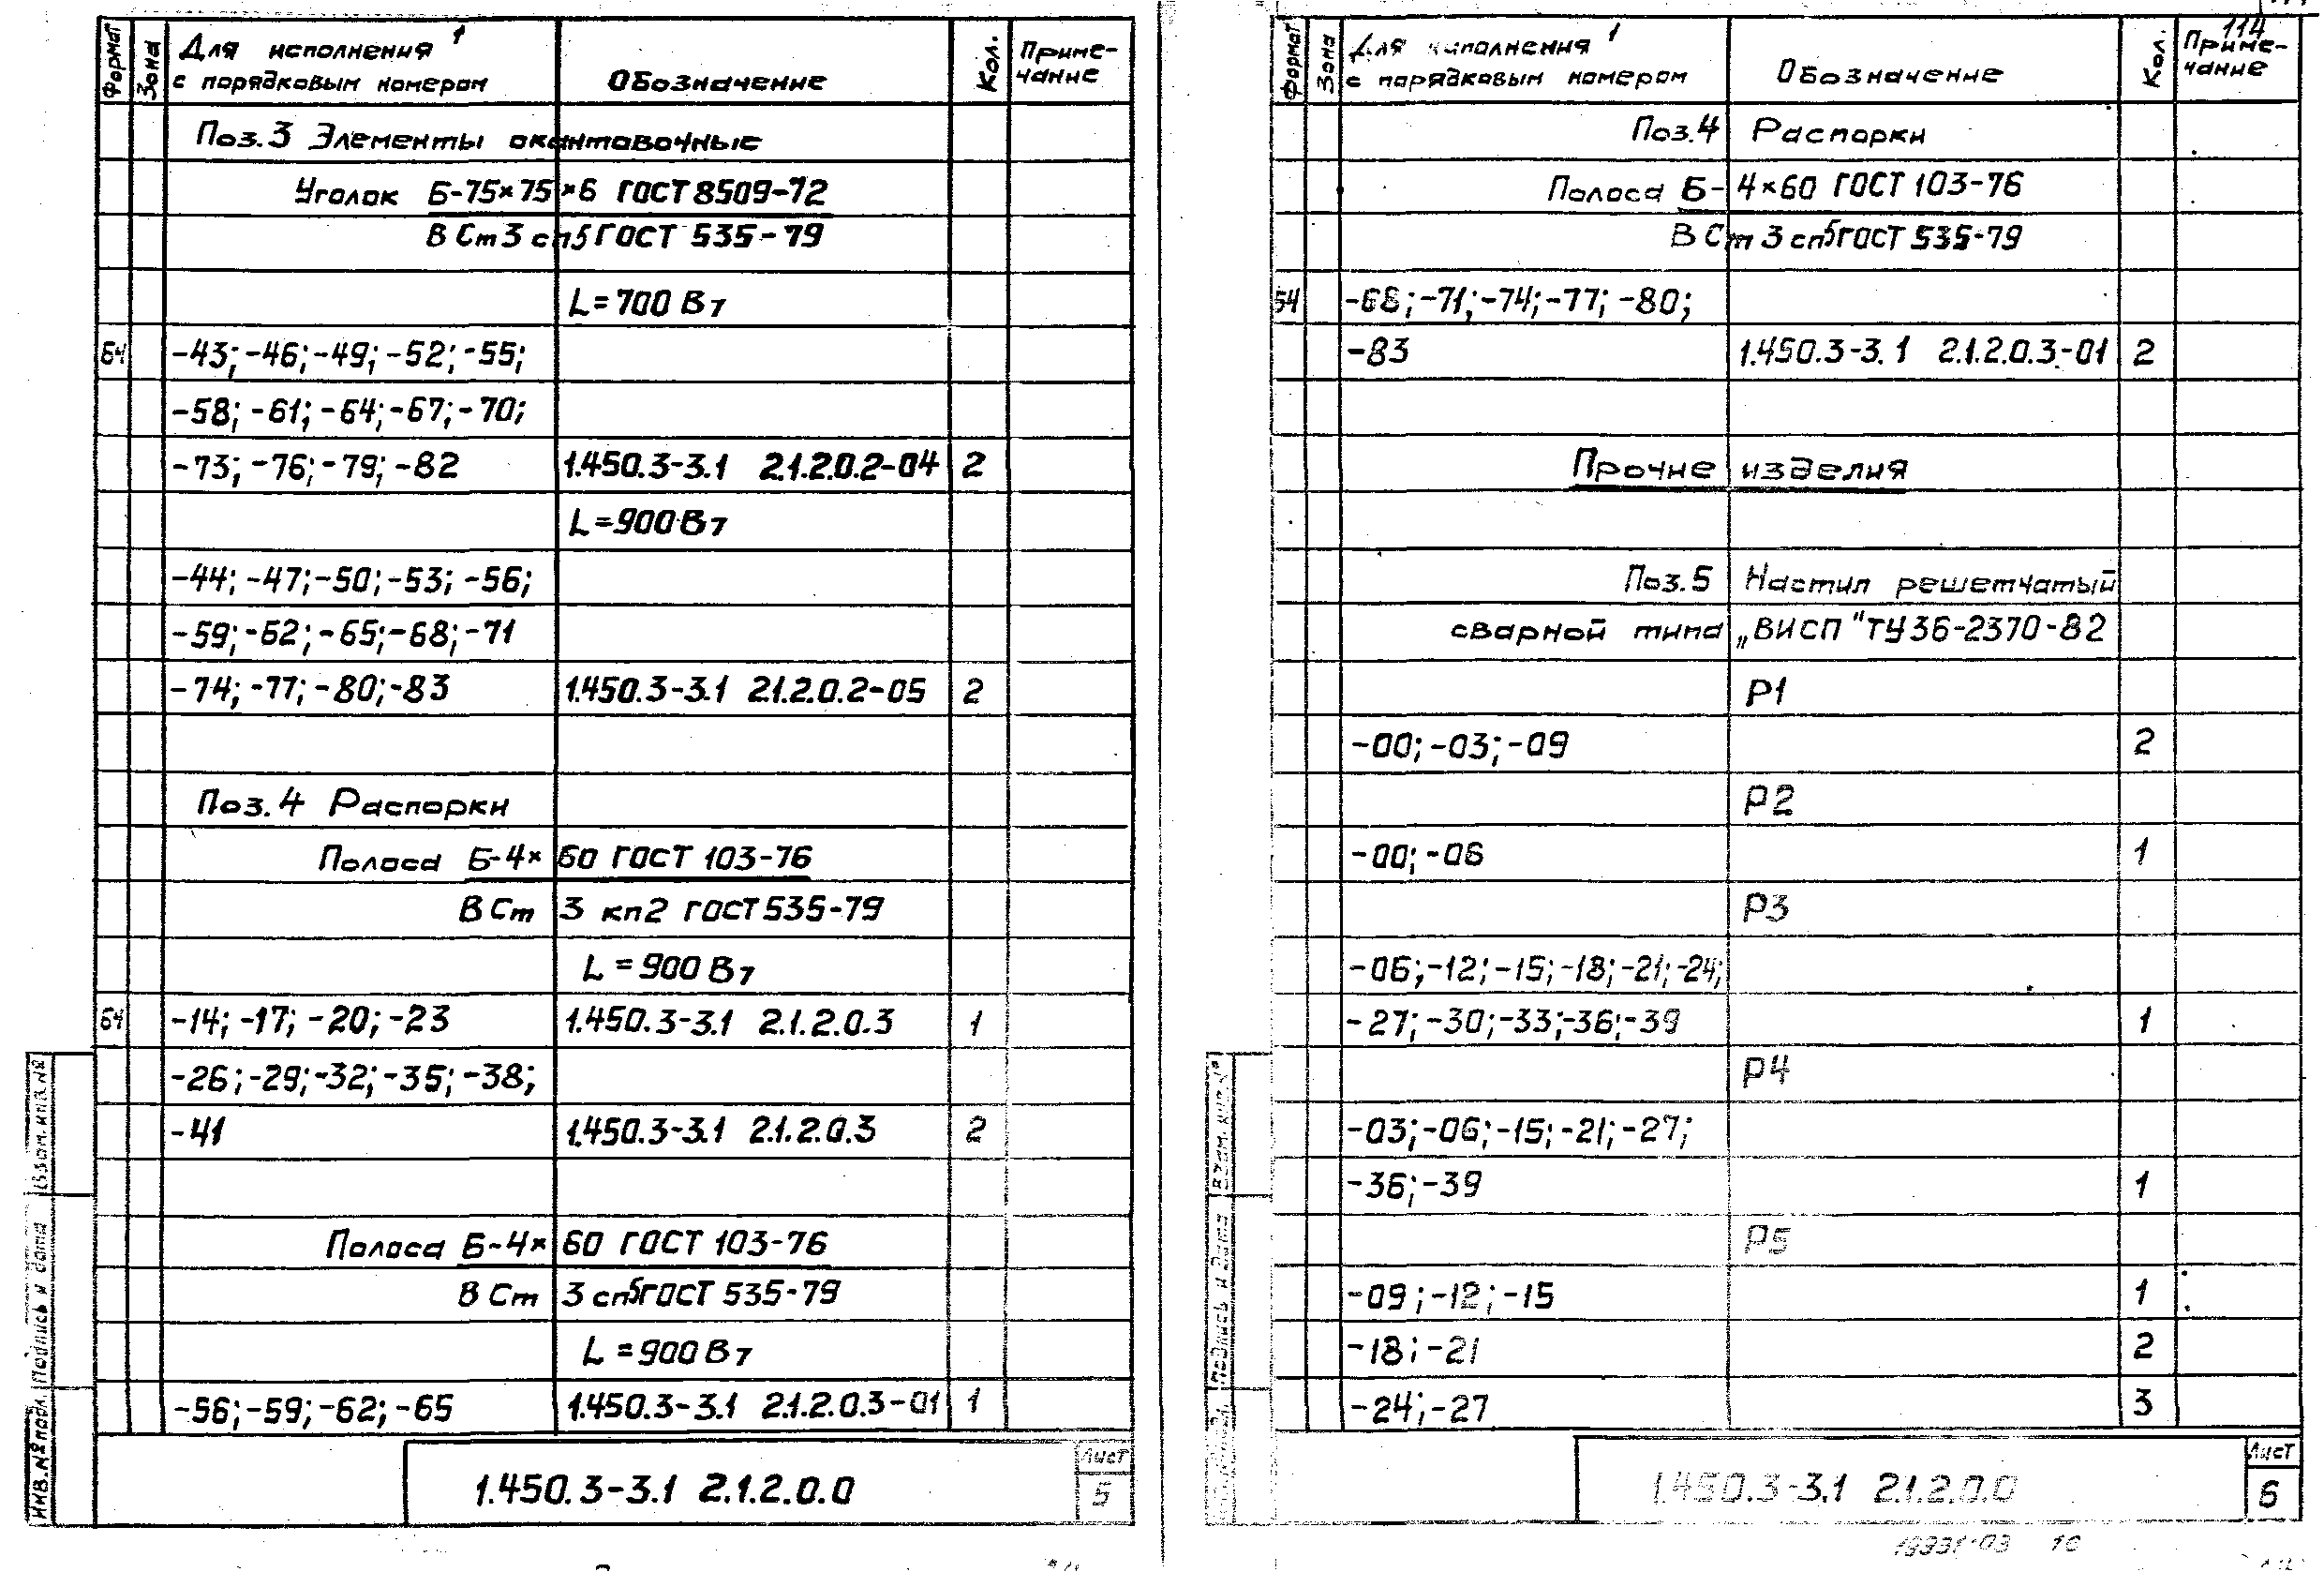 Формат Зона Для исполнения 1 с порядковым номером Обозначение Кол. Приме-
чание
Поз.3 Элементы окантовочные
Уголок Б-75×75×6 ГОСТ 8509-72
В Ст 3 сп5 ГОСТ 535-79
L=700 Вт
БЧ -43; -46; -49; -52; -55;
-58; -61; -64; -67; -70;
-73; -76; -79; -82 1.450.3-3.1 2.1.2.0.2-04 2
L=900 Вт
-44; -47; -50; -53; -56;
-59; -62; -65; -68; -71
-74; -77; -80; -83 1.450.3-3.1 2.1.2.0.2-05 2
Поз.4 Распорки
Полоса Б-4×60 ГОСТ 103-76
В Ст 3 кп2 ГОСТ 535-79
L=900 Вт
БЧ -14; -17; -20; -23 1.450.3-3.1 2.1.2.0.3 1
-26; -29; -32; -35; -38;
-41 1.450.3-3.1 2.1.2.0.3 2
Полоса Б-4×60 ГОСТ 103-76
В Ст 3 сп5 ГОСТ 535-79
L=900 Вт
-56; -59; -62; -65 1.450.3-3.1 2.1.2.0.3-01 1
Взам. инв. №
Подпись и дата
Инв. № подл.
1.450.3-3.1 2.1.2.0.0
Лист
5
114
Формат Зона Для исполнения 1 с порядковым номером Обозначение Кол. Приме-
чание
Поз.4 Распорки
Полоса Б-4×60 ГОСТ 103-76
В Ст 3 сп5 ГОСТ 535-79
БЧ -68; -71; -74; -77; -80;
-83 1.450.3-3.1 2.1.2.0.3-01 2
Прочие изделия
Поз.5 Настил решетчатый
сварной типа „ВИСП" ТУ36-2370-82
Р1
-00; -03; -09 2
Р2
-00; -06 1
Р3
-06; -12; -15; -18; -21; -24;
-27; -30; -33; -36; -39 1
Р4
-03; -06; -15; -21; -27;
-36; -39 1
Р5
-09; -12; -15 1
-18; -21 2
-24; -27 3
Взам. инв. №
Подпись и дата
1.450.3-3.1 2.1.2.0.0
Лист
6